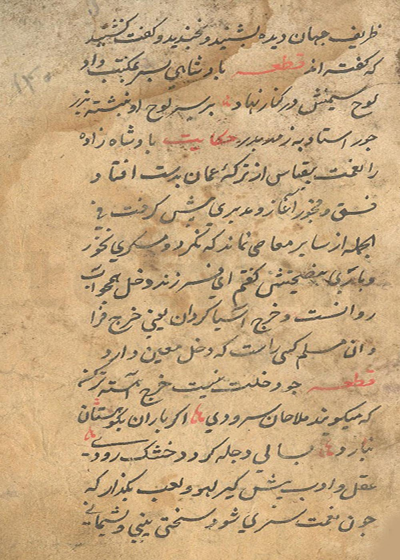 ظریف جهان دیده بشنید و بخندید و کفت نشنیدۀ
که کفته اند قطعه پادشاهی پسر بمکتب داد
لوح سیمینش در کنار نهاد بر سر لوح او نبشته بزر
جور استاد به ز مهر پدر حکایت پادشاه زادۀ
را نعمت بقیاس از ترکۀ عمان بدست افتاد
فسق و فجور آغاز و مبذری پیش کرفت فی
الجمله از سایر معاصی نماند که نکرد و مسکری نخورد
و باری بنصیحتش کفتم ای فرزند دخل همچو آب
روانست و خرج آسیا کردان یعنی خرج فرا
وان مسلم کسی راست که دخل معین دارد
قطعه جو دخلت نیست خرج آهسته تر کن
که میکویند ملاحان سرودی اکر باران بکوهستان
نبارد بسالی دجله کردد خشک رودی
عقل و ادب پیش کیر لهو و لعب بکذار که
جون نعمت سپری شود سختی بینی و پشیمانی